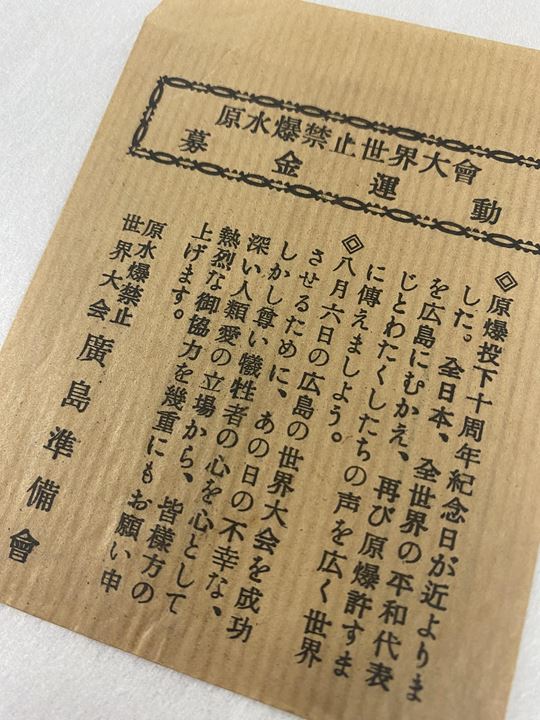 原水爆禁止世界大會
募金運動
◇原爆投下十周年紀念日が近よりま
した。 全日本、全世界の平和代表
を広島にむかえ、再び原爆許すま
じとわたくしたちの声を広く世界
に傳えましよう。
◇八月六日の広島の世界大会を成功
させるために、あの日の不幸な、
しかし尊い犠牲者の心を心として
深い人類愛の立場から、皆様方の
熱烈な御協力を幾重にもお願い申
上げます。
原水爆禁止
世界大会
廣島準備會